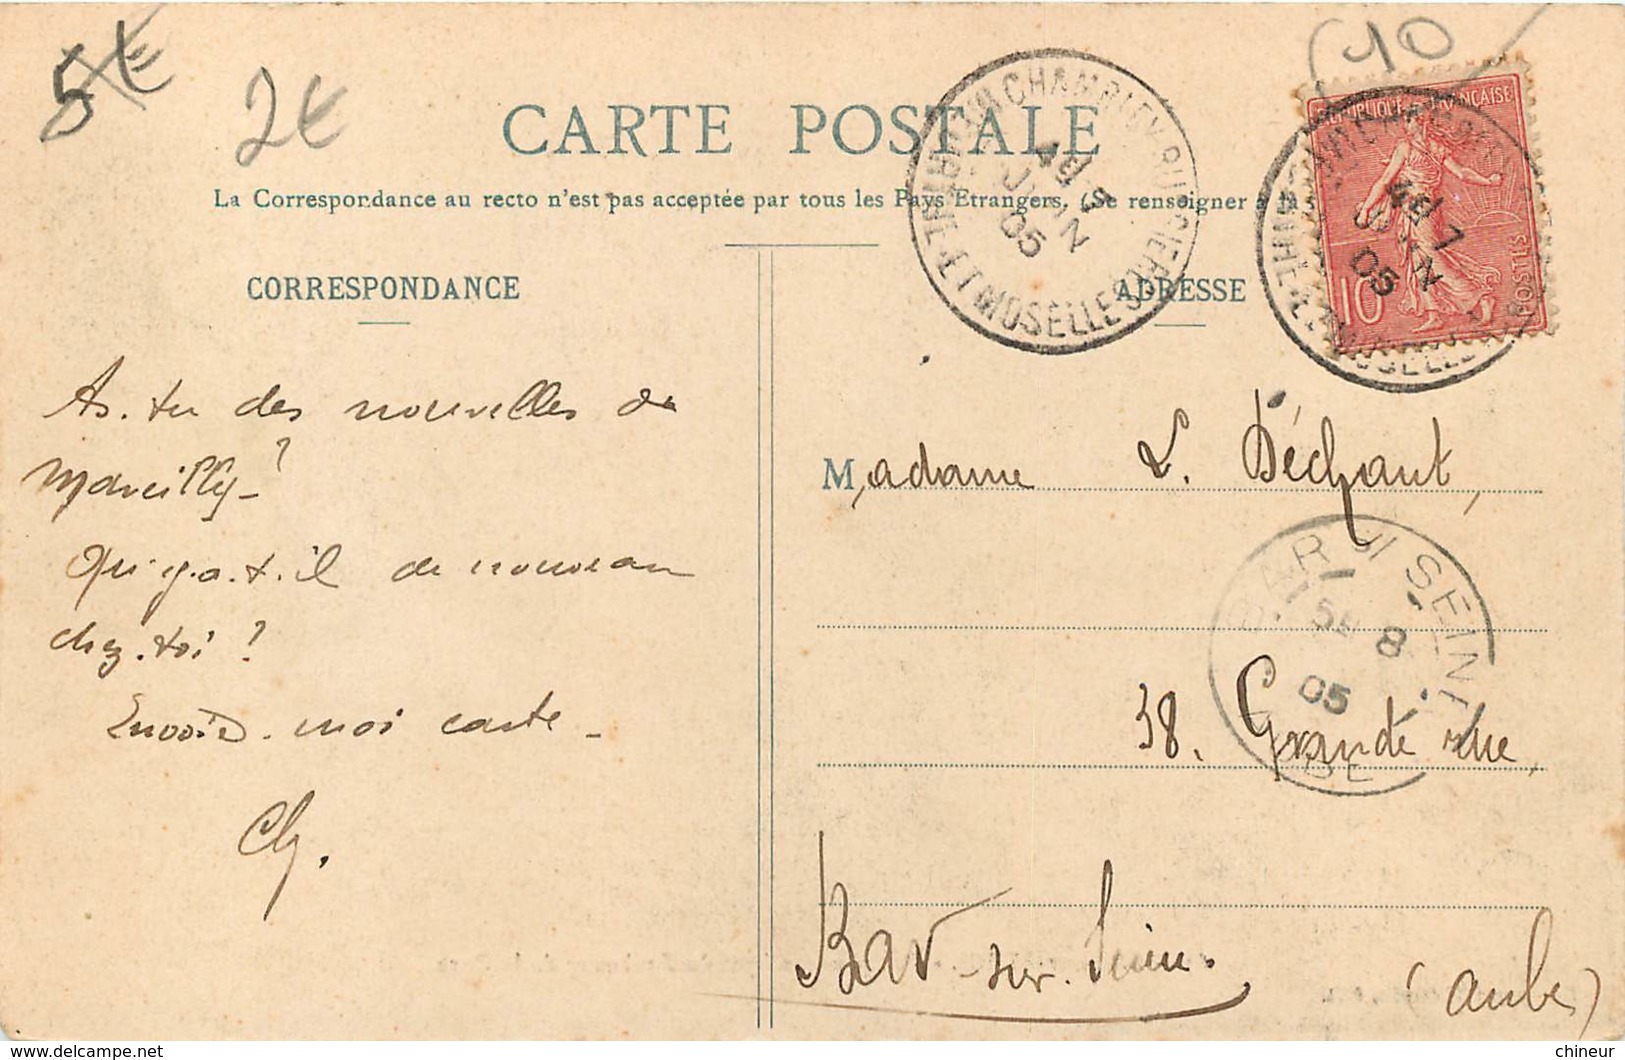 5€
2€
10
CARTE POSTALE
La Correspondance au recto n'est pas acceptée par tous les Pays Etrangers. (Se renseigner à la
CORRESPONDANCE
ADRESSE
CHAMBLEY-BUSSIERES
MEURTHE-ET-MOSELLE
7
JUIN
05
REPUBLIQUE FRANÇAISE
POSTES
10
7
JUIN
05
As-tu des nouvelles de
Marcilly?
Qu'y-a-t-il de nouveau
chez-toi?
Envoie-moi carte -
Ch.
Madame L. Déchant,
BAR S/ SEINE
8
05
AUBE
38. Grande rue,
Bar-sur-Seine.
(Aube)
chineur